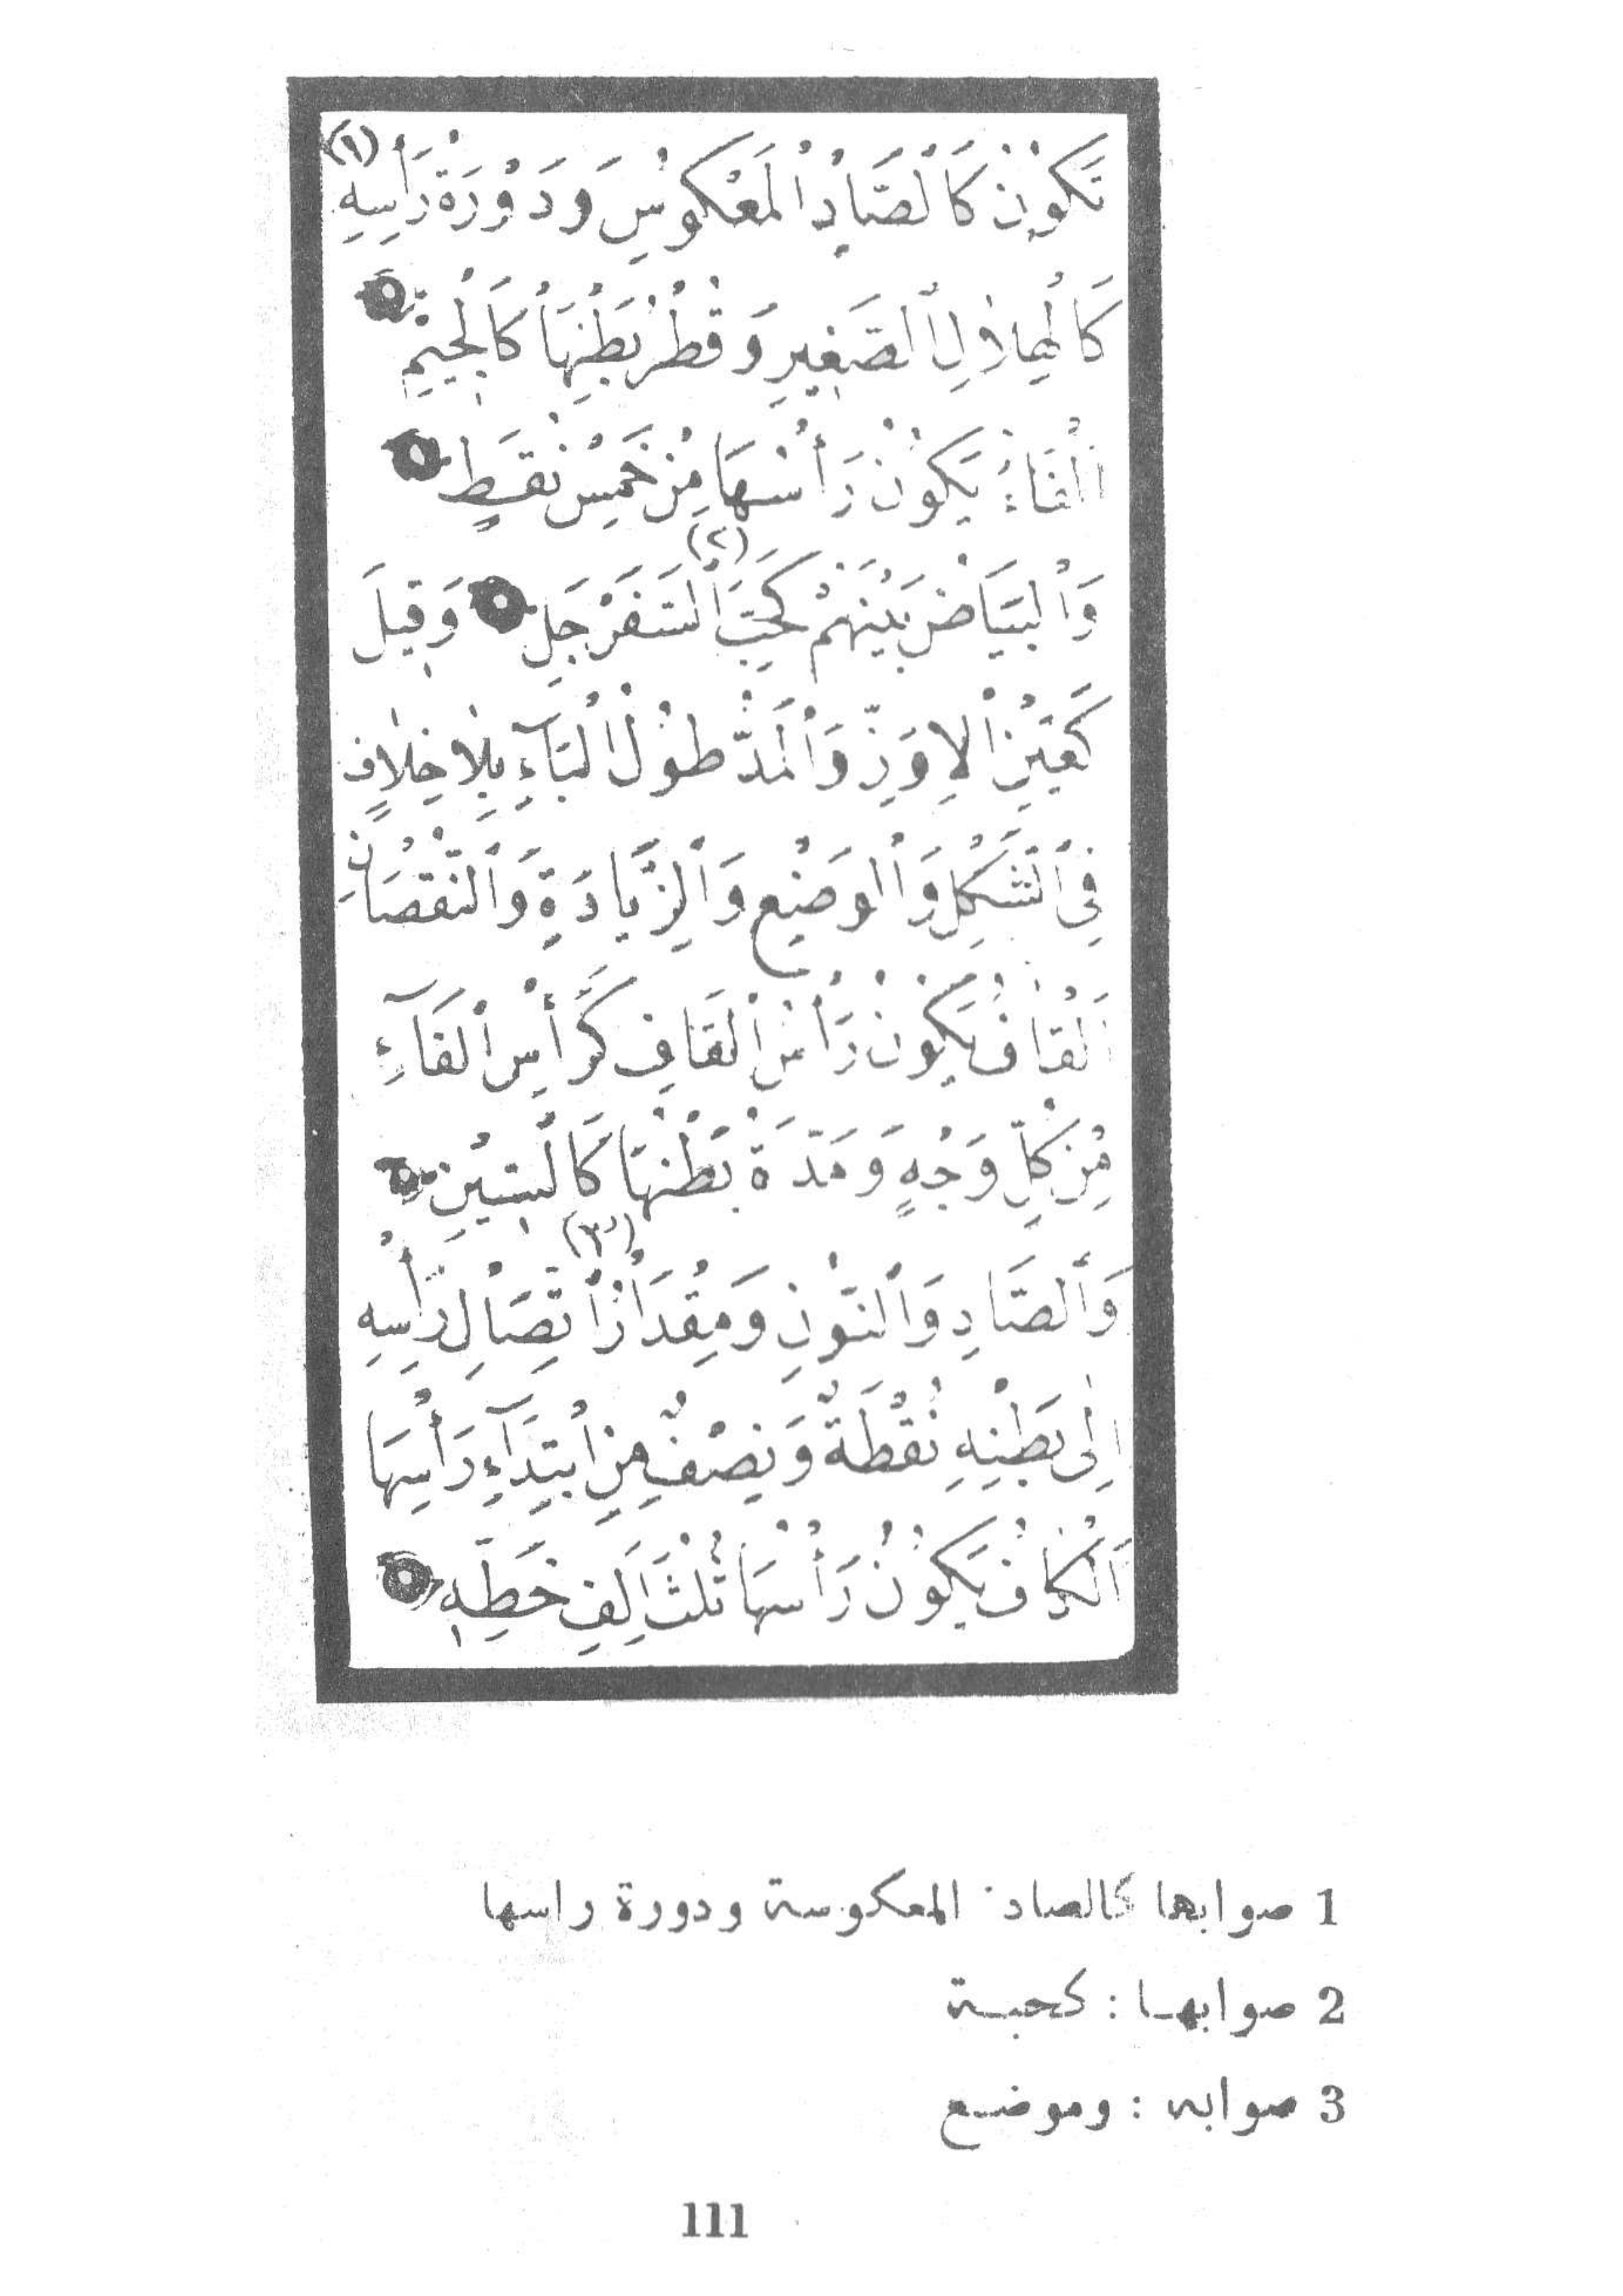 تَكُونُ كَالصَّادِ الْمَعْكُوسِ وَدَوْرَةُ رَأْسِهِ (١)
كَالْهِلَالِ الصَّغِيرِ وَقُطْرُ بَطْنِهَا كَالْجِيمِ
اَلْفَاءُ يَكُونُ رَأْسُهَا مِنْ خَمْسِ نُقَطٍ
وَالْبَيَاضُ بَيْنَهُمْ كَحَبِّ (٢) السَّفَرْجَلِ وَقِيلَ
كَعَيْنِ الْاِوَزِّ وَالْمَدُّ طُولُ الْبَآءِ بِلَا خِلَافٍ
فِي الشَّكْلِ وَالْوَضْعِ وَالزِّيَادَةِ وَالنُّقْصَانِ
اَلْقَافُ يَكُونُ رَأْسُ الْقَافِ كَرَأْسِ الْفَآءِ
مِنْ كُلِّ وَجْهٍ وَمَدَّةُ بَطْنِهَا كَالسِّينِ
وَالصَّادِ وَالنُّونِ وَمِقْدَارُ (٣) اتِّصَالِ رَأْسِهِ
اِلٰى بَطْنِهِ نُقْطَةٌ وَنِصْفٌ مِنِ ابْتِدَآءِ رَأْسِهَا
اَلْكَافُ يَكُونُ رَأْسُهَا ثُلُثَ اَلِفِ خَطِّهِ
1 صوابها كالصاد المعكوسة ودورة راسها
2 صوابها : كحبة
3 صوابه : وموضع
111